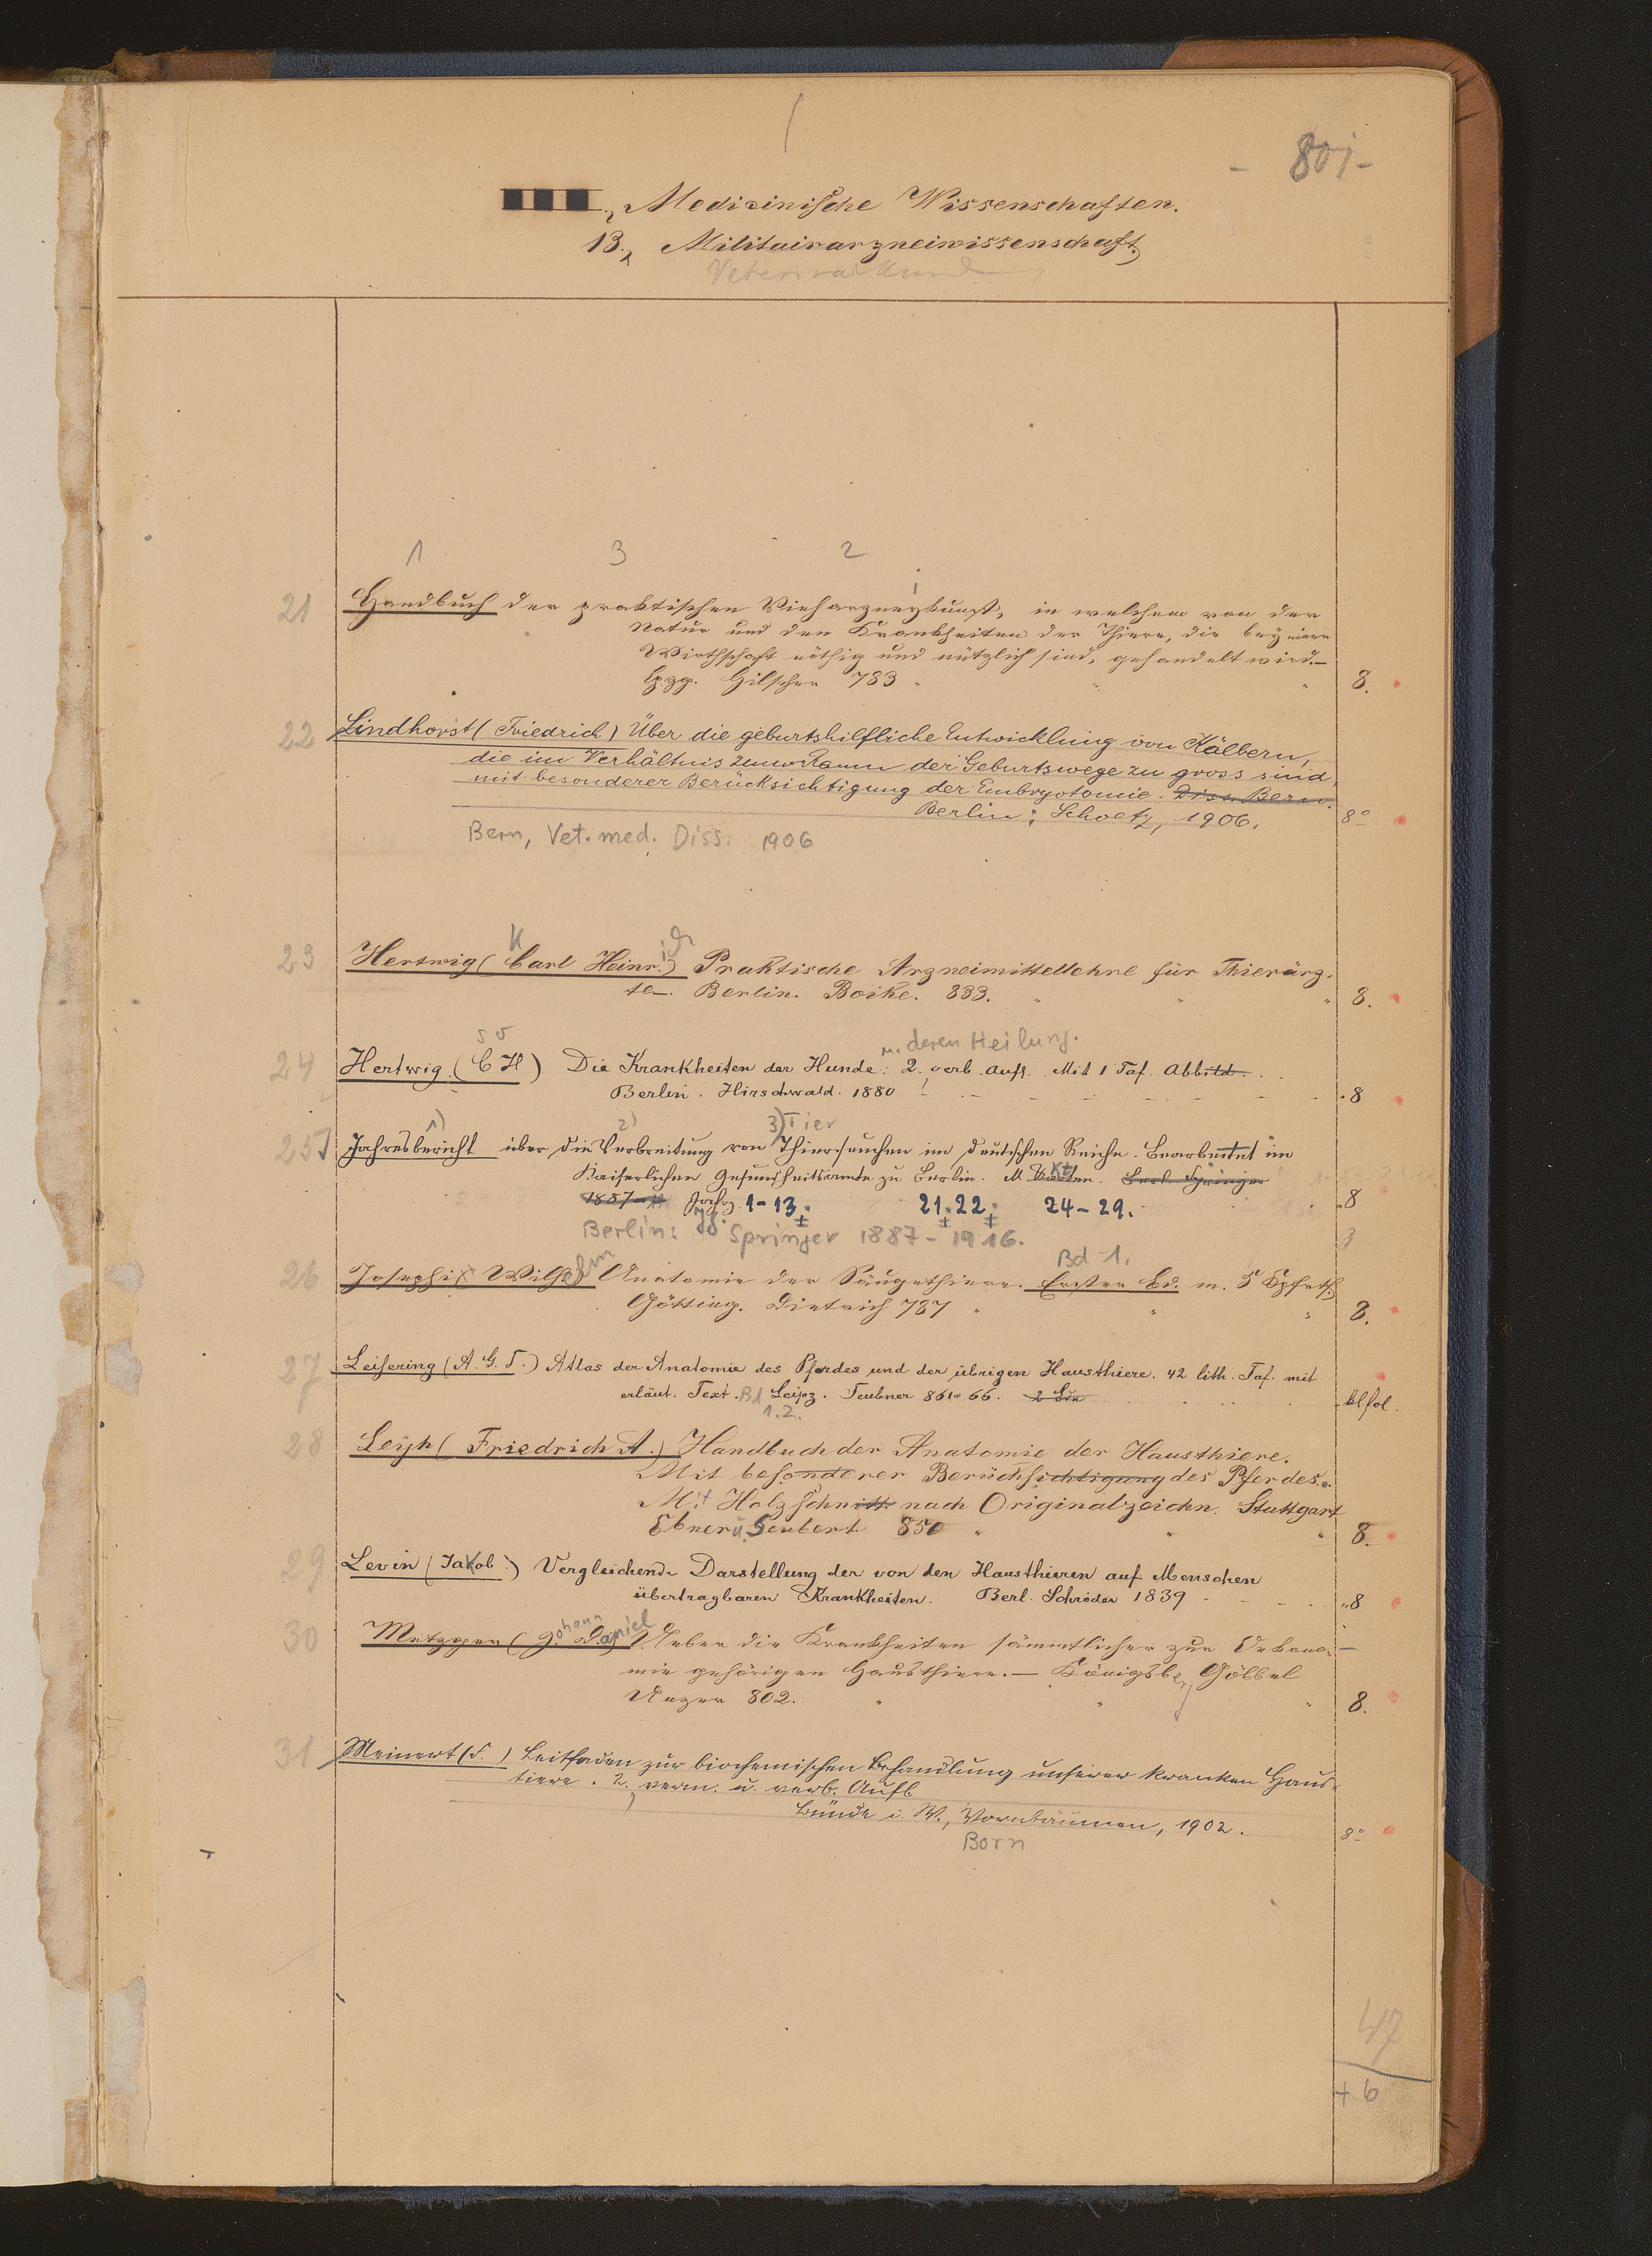 - 801 -
Medicinische Wissenschaften.
13., Militairarzneiwissenschaft.
Veterinärkunde
1 3 2
21 Handbuch der praktischen Vieharzneykunst, in welchem von der
Natur und den Krankheiten der Thiere, die bey einer
Wirthschaft nöthig und nützlich sind, gehandelt wird. —
Lpzg. Hilscher 783 " " " 8.
22 Lindhorst (Friedrich) Über die geburtshilfliche Entwicklung von Kälbern,
die im Verhältnis zum Raum der Geburtswege zu gross sind,
mit besonderer Berücksichtigung der Embryotomie. Diss. Bern.
Berlin: Schoetz, 1906. 8°
Bern, Vet. med. Diss. 1906
K ich
23 Hertwig (Carl Heinr.) Praktische Arzneimittellehre für Thierärz-
te. Berlin. Boike. 833. " " " 8.
u. deren Heilung.
24 Hertwig (C H) Die Krankheiten der Hunde: 2. verb. Aufl. Mit 1 Taf. Abbild.
Berlin. Hirschwald. 1880 8
1) 2) 3) Tier
25 Jahresbericht über die Verbreitung von Thierseuchen im Deutschen Reiche. Bearbeitet im
Kaiserlichen Gesundheitsamte zu Berlin. M Karten. Berl. Springer
1887 Jahrg. 1-13. 21. 22. 24-29. 8
Berlin: Springer 1887-1916.
Bd 1.
26 Josephi Wilhelm Anatomie der Säugethiere. Erster Bd. m. 5 Kpfrtf.
Götting. Dietrich 787 " " " 8.
27 Leisering (A. G. T.) Atlas der Anatomie des Pferdes und der übrigen Hausthiere. 42 lith. Taf. mit
erläut. Text. Bd Leipz. Teubner 861-66. 2 Bde kl fol.
1. 2.
28 Leyh (Friedrich A.) Handbuch der Anatomie der Hausthiere.
Mit besonderer Berücksichtigung des Pferdes.
Mit Holzschnitt nach Originalzeichn. Stuttgart
Ebner u. Seubert 850 " " " 8.
29 Levin (Jakob) Vergleichende Darstellung der von den Hausthieren auf Menschen
übertragbaren Krankheiten. Berl. Schröder 1839 8
30 Metzger (Johann Daniel) Ueber die Krankheiten sämmtlicher zur Oekono-
mie gehörigen Hausthiere. — Königsberg Göbbel
Unzer 802. " " " 8.
31 Meinert (F.) Leitfaden zur biochemischen Behandlung unserer kranken Haus-
tiere. 2. verm. u. verb. Aufl
Bünde i. W., Vornbäumen, 1902. 8°
Born
47
+ 6